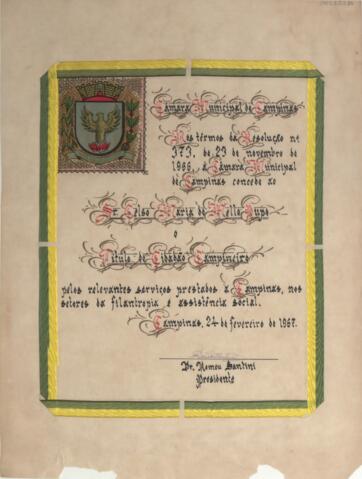 Câmara Municipal de Campinas
Nos têrmos da Resolução nº
373, de 23 de novembro de
1966, a Câmara Municipal
de Campinas concede ao
Dr. Celso Maria de Mello Pupo
o
Título de Cidadão Campineiro
pelos relevantes serviços prestados a Campinas, nos
setores da filantropia e assistência social.
Campinas, 24 de fevereiro de 1967.
Dr. Romeu Santini
Presidente